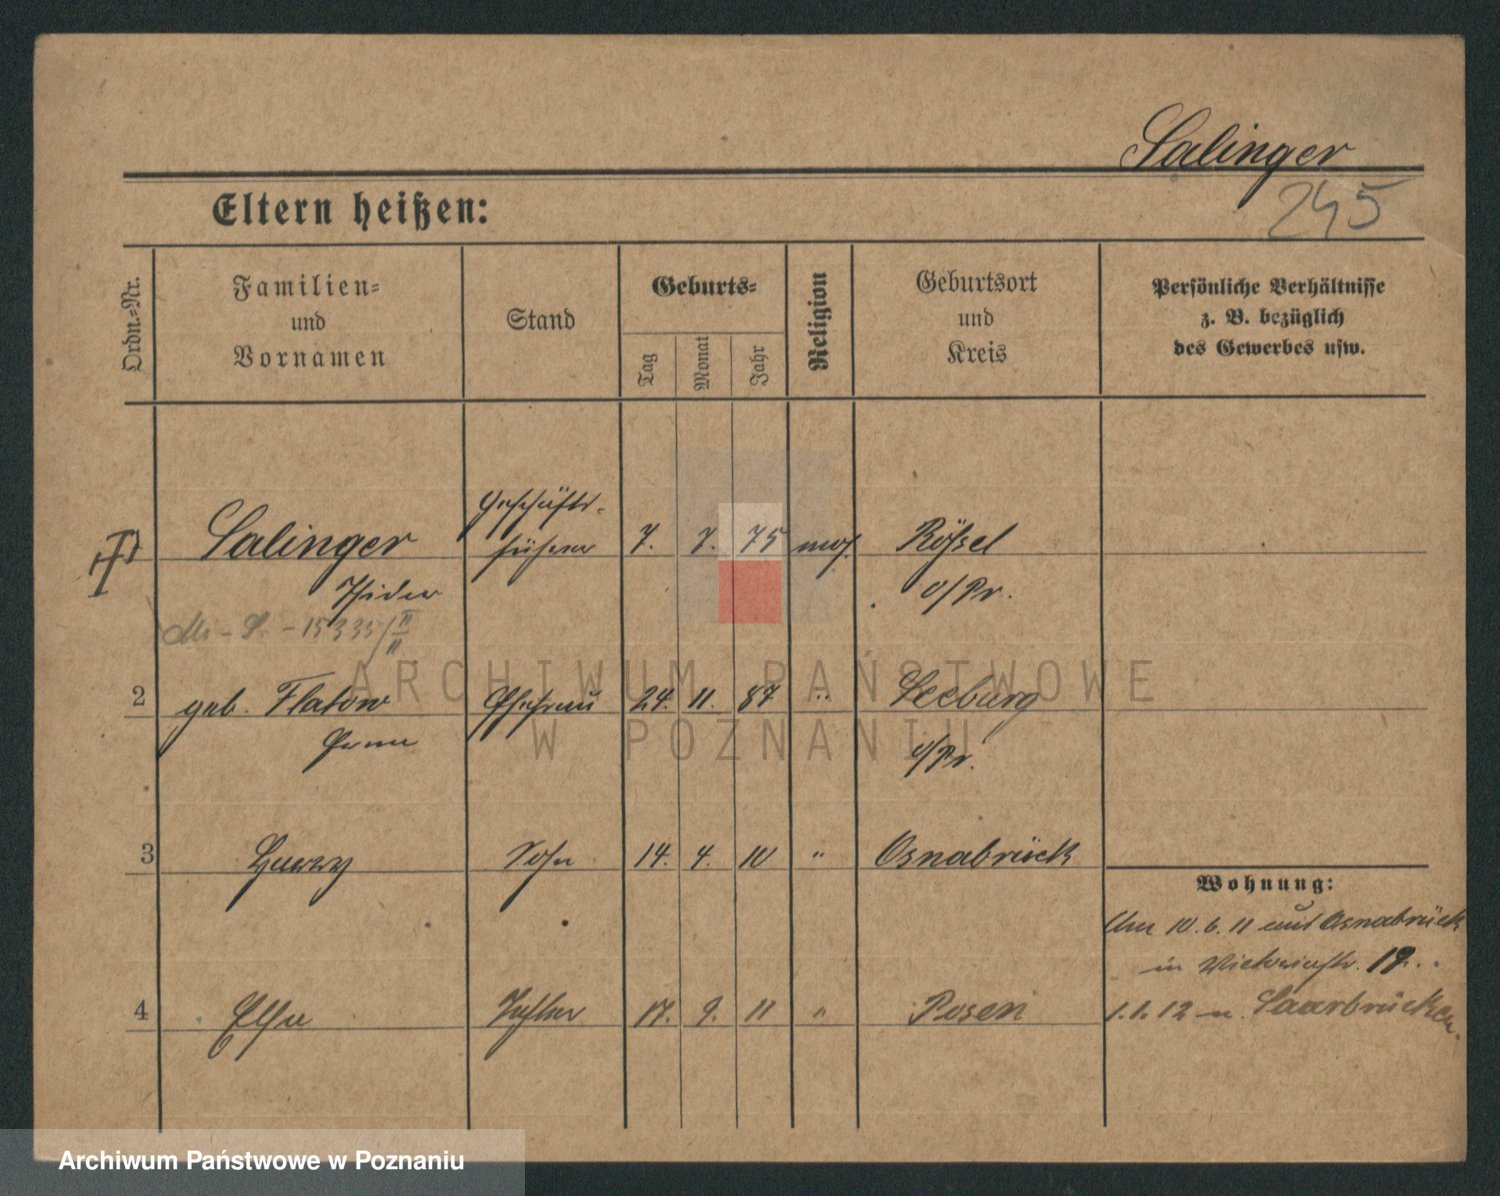 Salinger
245
Eltern heißen:
Ordn.-Nr.
Familien-
und
Vornamen
Stand
Geburts-
Tag
Monat
Jahr
Religion
Geburtsort
und
Kreis
Persönliche Verhältnisse
z. B. bezüglich
des Gewerbes usw.
Geschäfts-
Salinger führer 7. 7. 75 mos. Rößel
Isidor o/Pr.
15335/II
II
2 geb. Flatow Ehefrau 24. 11. 87 " Seeburg
o/Pr.
3 Harry Sohn 14. 4. 10 " Osnabrück
Wohnung:
Am 10. 6. 11 aus Osnabrück
in Victoriastr. 19.
4 Else Tochter 17. 9. 11 " Posen
1. 1. 12 n. Saarbrücken.
ARCHIWUM PAŃSTWOWE
W POZNANIU
Archiwum Państwowe w Poznaniu